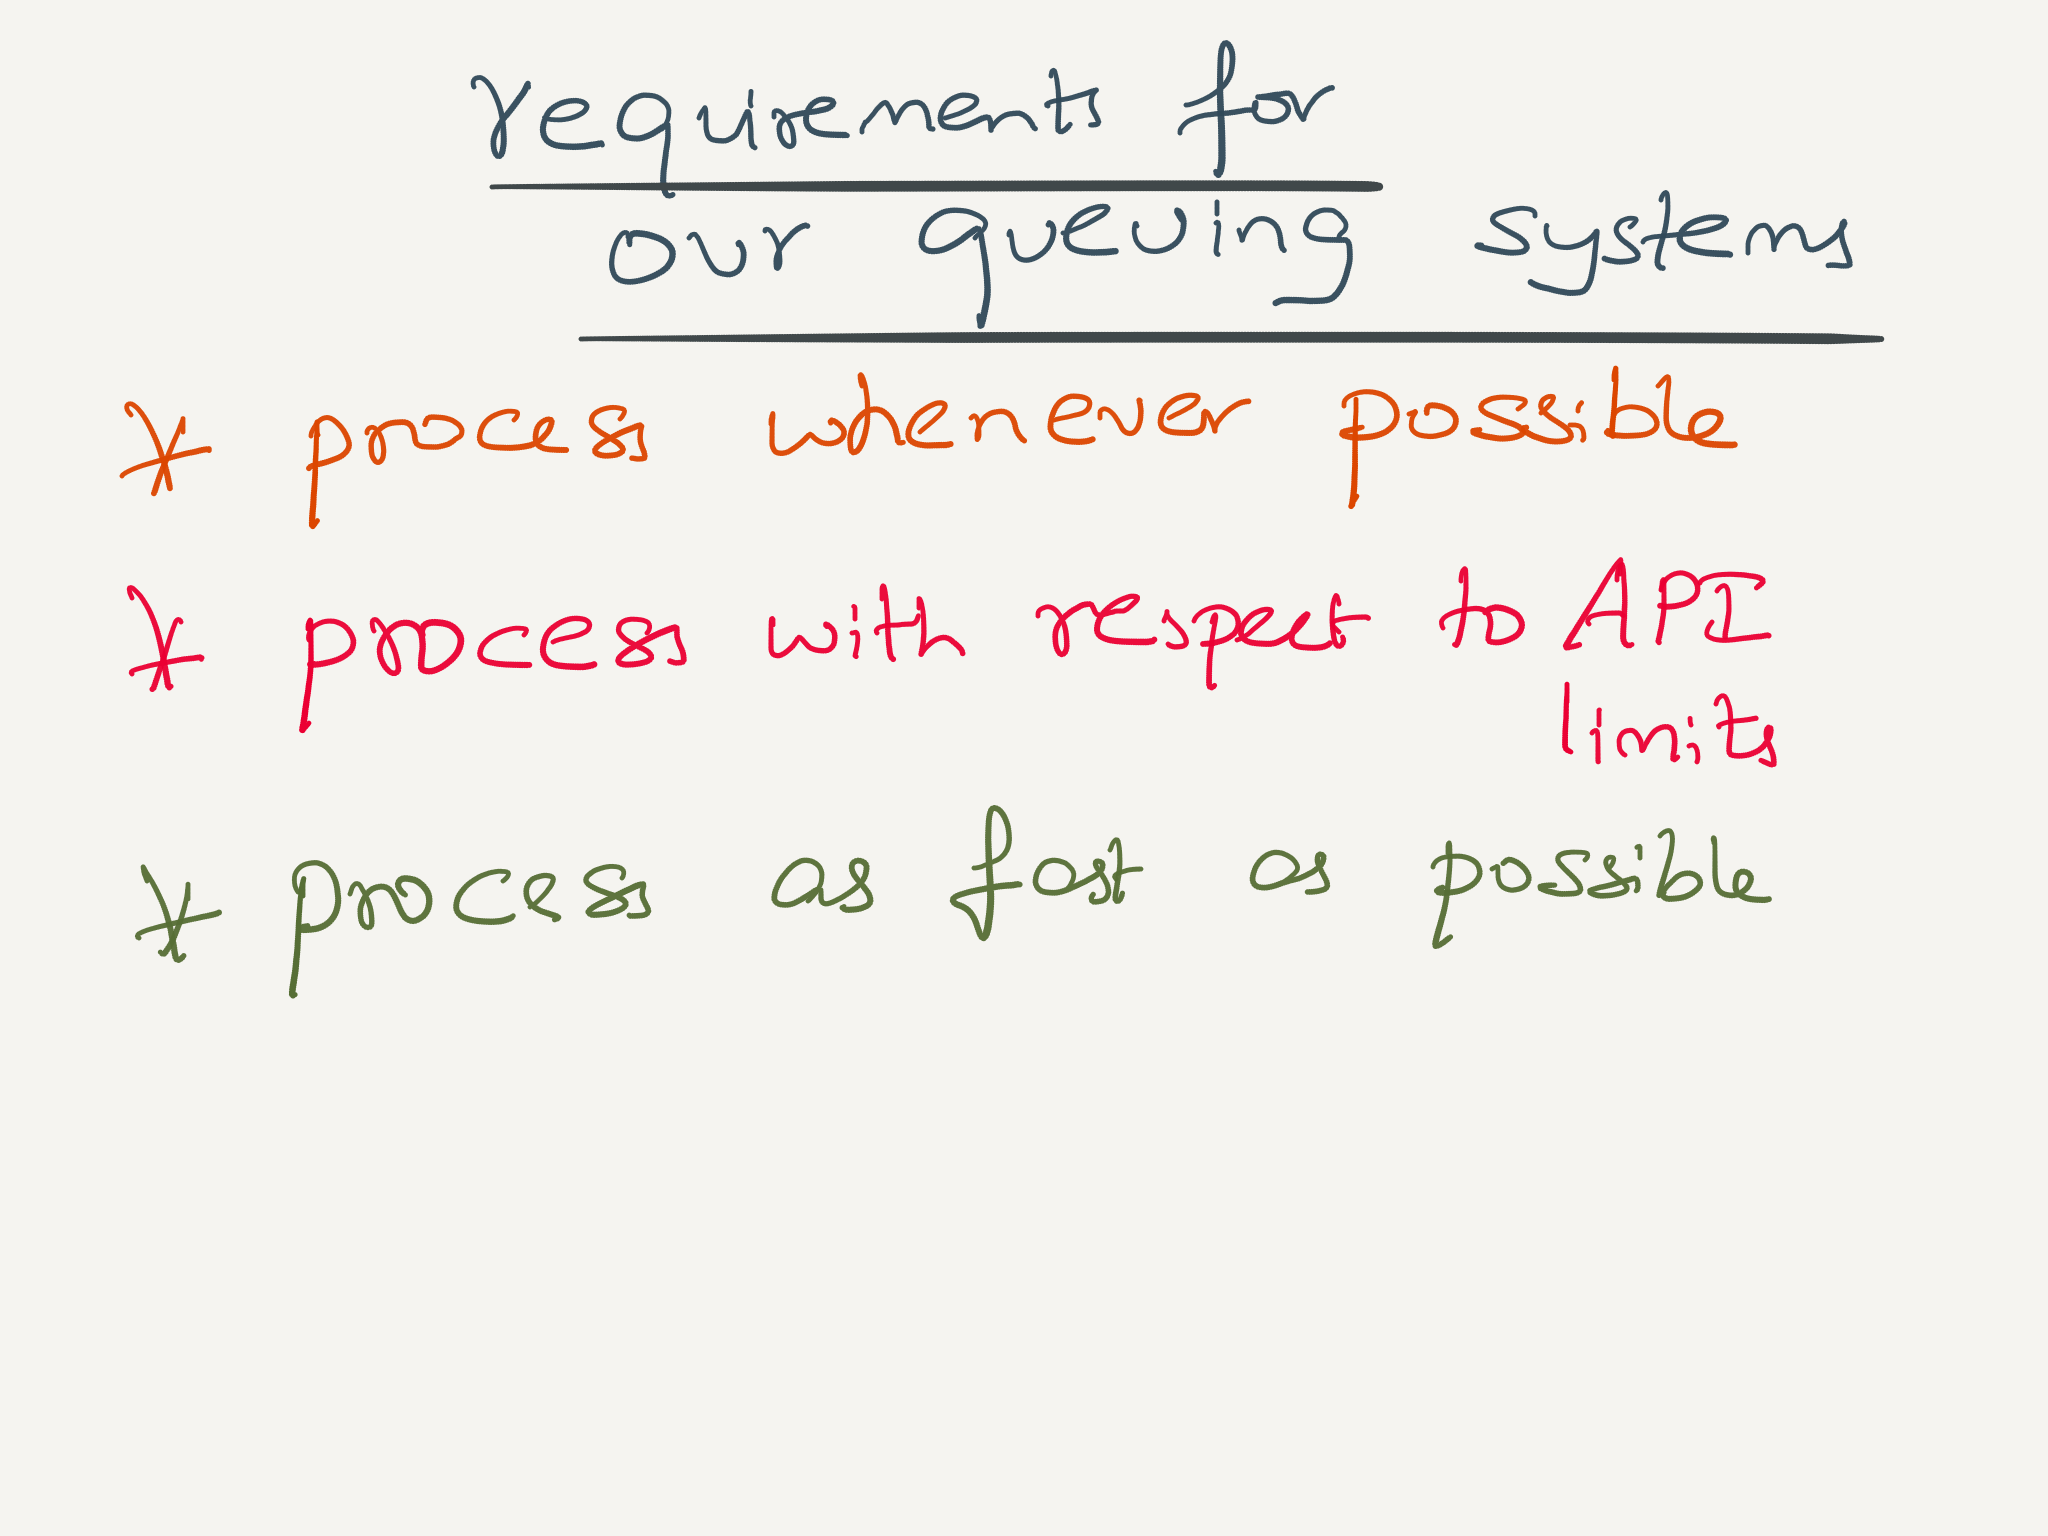 requirements for
our queuing systems
* process whenever possible
* process with respect to API
limits
* process as fast as possible